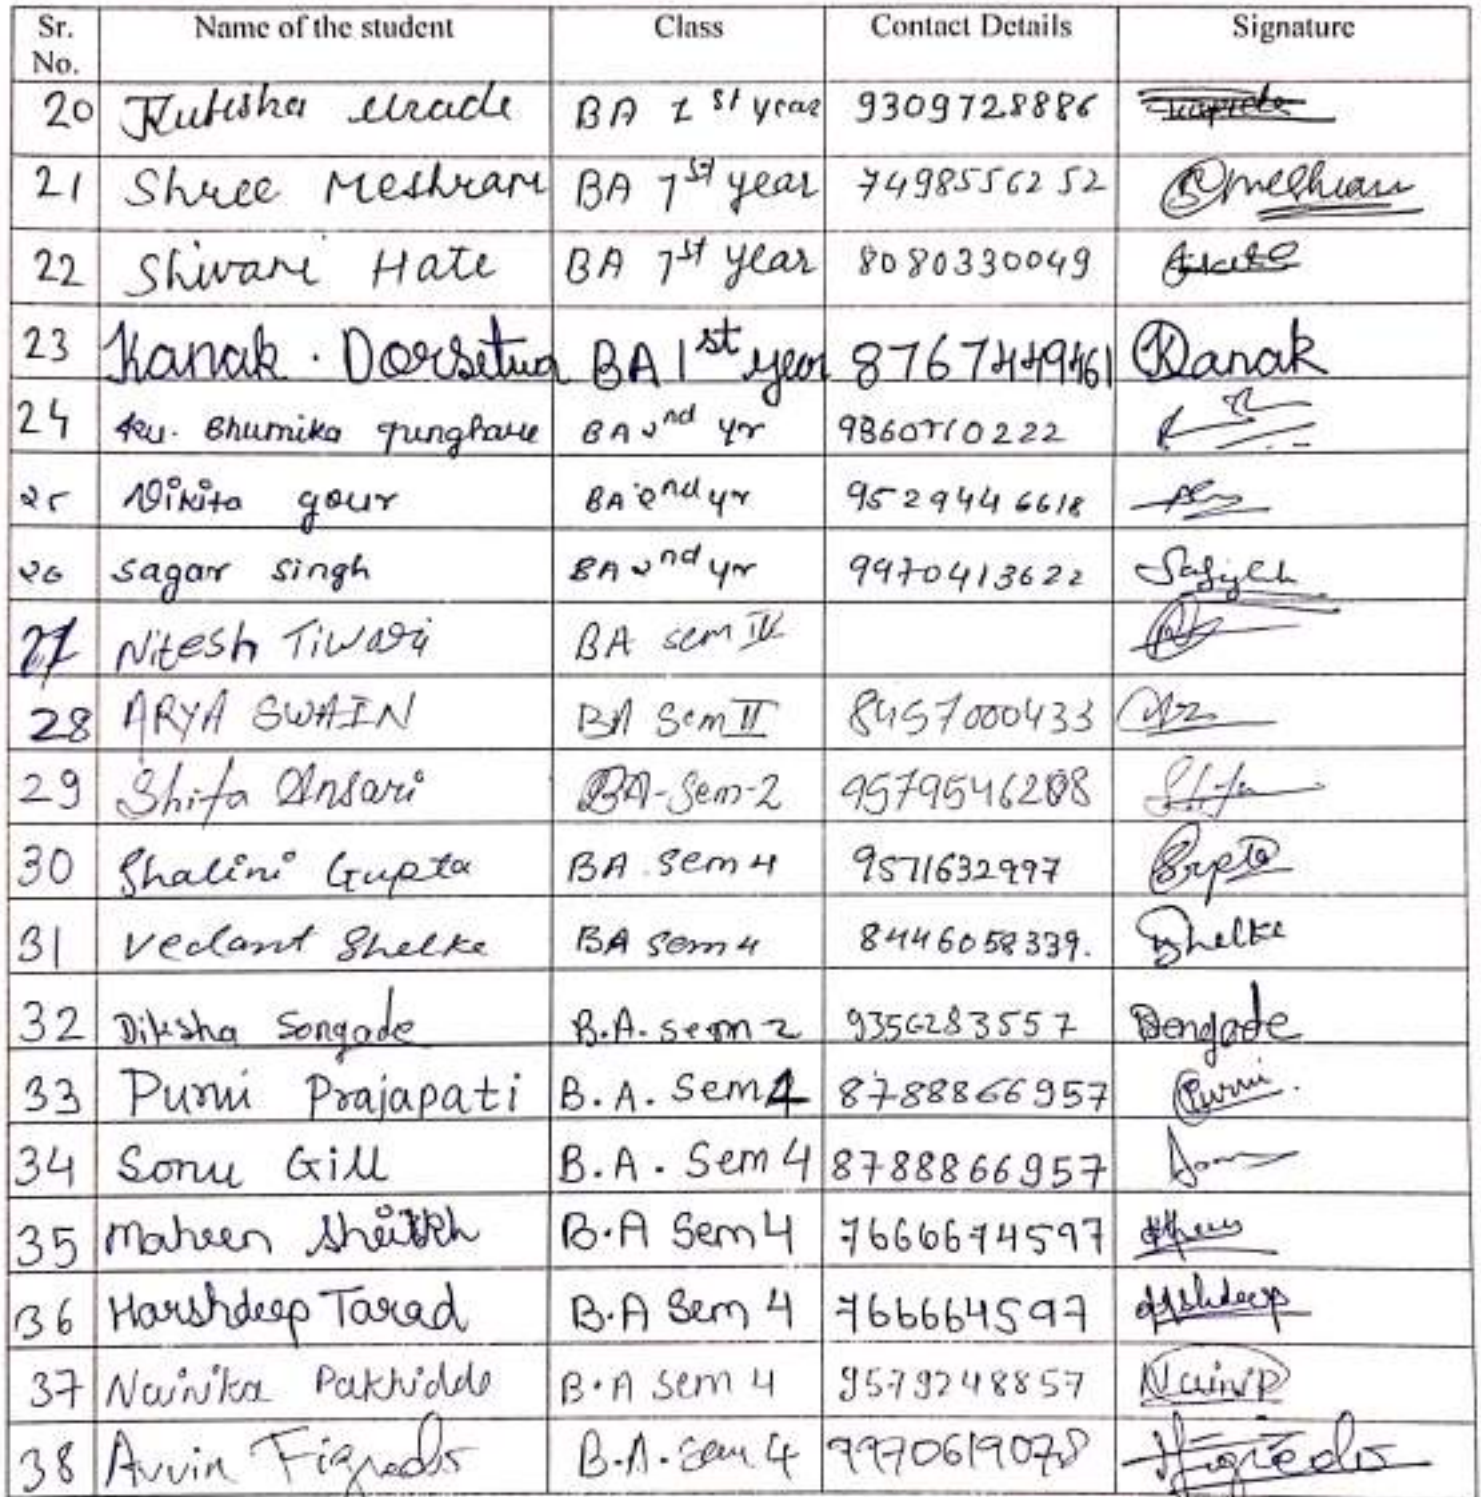 Sr. No. Name of the student Class Contact Details Signature
20 Kutisha Urade BA 1st year 9309728886
21 Shree Meshram BA 1st year 7498556252 Smeshram
22 Shivani Hate BA 1st year 8080330049
23 Kanak. BA 1st year Kanak
24 Ku. Bhumika BA 2nd yr
25 Nikita gour BA 2nd yr 9529446618
26 sagar singh BA 2nd yr 9970413622
27 Nitesh Tiwari BA sem IV
28 ARYA SWAIN BA Sem II 8457000433
29 Shifa Ansari BA-Sem-2 9579546208
30 Shalini Gupta BA Sem 4 9571632997 Gupta
31 Vedant Shelke BA Sem 4 8446058339. Shelke
32 Diksha Songade B.A. sem 2 9356283557 Dongade
33 Purvi Prajapati B.A. Sem 4 8788866957 Purvi.
34 Sonu Gill B.A. Sem 4 8788866957
35 Maheen Sheikh B.A Sem 4 7666674597
36 Harshdeep Tarad B.A Sem 4 766664597
37 Nainika Pakhidde B.A Sem 4 9579248857 NainiP
38 Avvin Figredo B.A. Sem 4 9970619078 Figredo